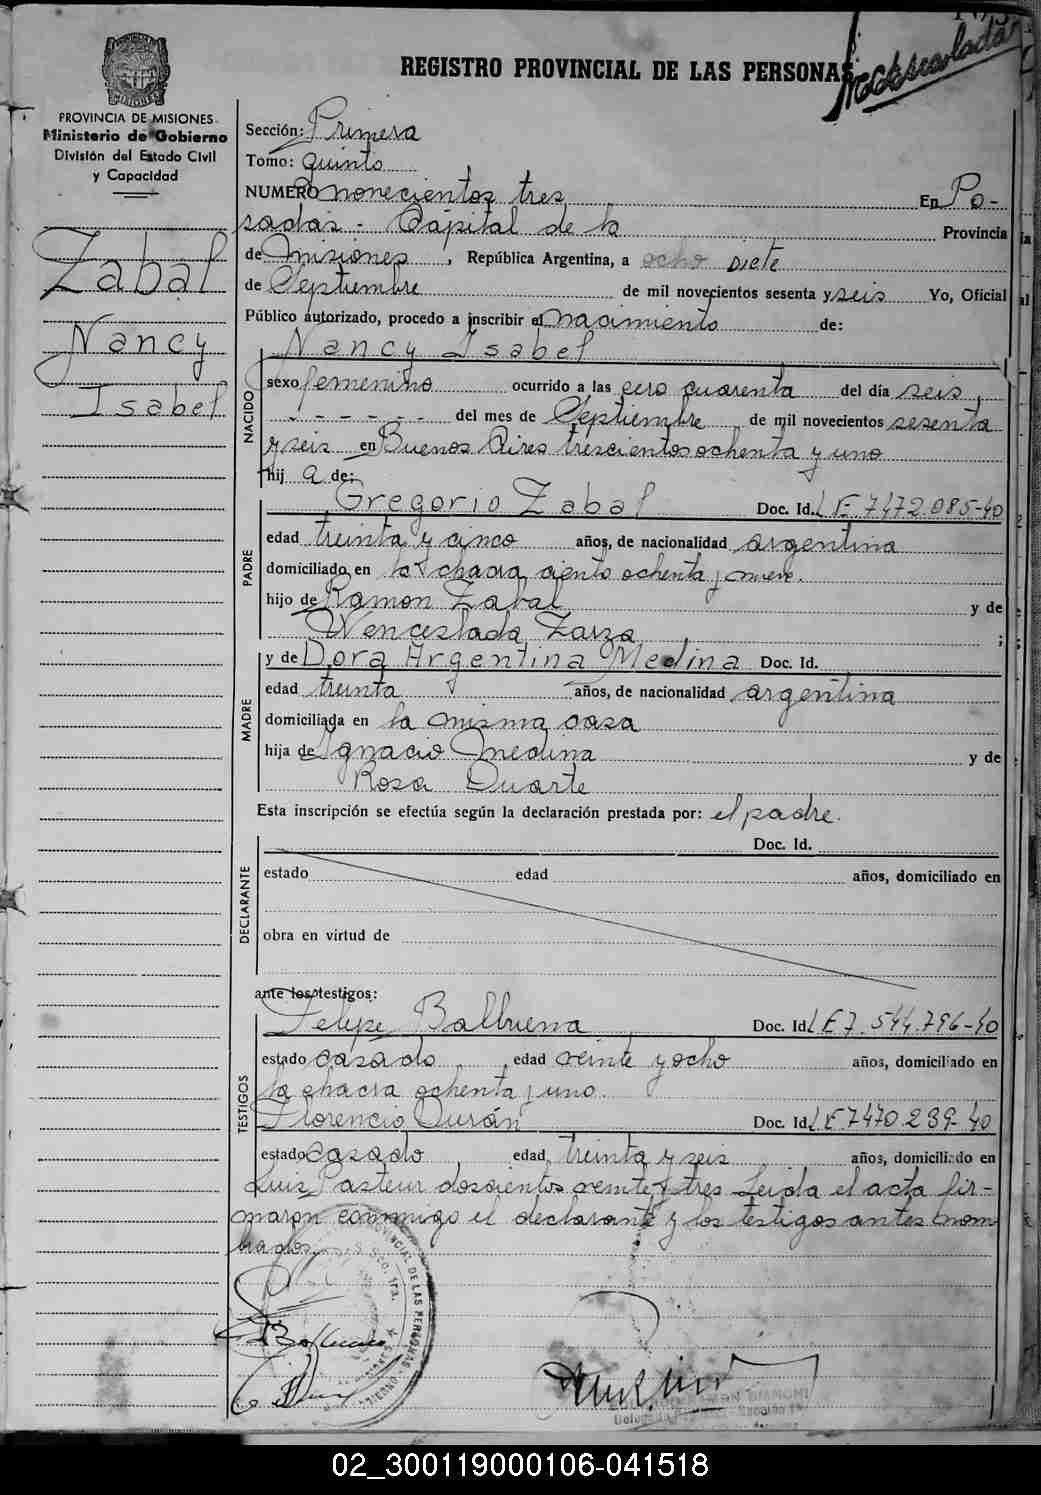 REGISTRO PROVINCIAL DE LAS PERSONAS
PROVINCIA DE MISIONES
Ministerio de Gobierno
División del Estado Civil
y Capacidad
Zabal
Nancy
Isabel
Sección: Primera
Tomo: quinto
NUMERO novecientos tres En Po-
sadas - Capital de la Provincia
de Misiones, República Argentina, a ocho siete
de Septiembre de mil novecientos sesenta y seis Yo, Oficial
Público autorizado, procedo a inscribir el nacimiento de:
Nancy Isabel
NACIDO
sexo femenino ocurrido a las cero cuarenta del día seis,
- - - - - - del mes de Septiembre de mil novecientos sesenta
y seis en Buenos Aires trescientos ochenta y uno
hij a de:
PADRE
Gregorio Zabal Doc. Id. L E- 7472.085-40
edad treinta y cinco años, de nacionalidad argentina
domiciliado en la chacra ciento ochenta y nueve.
hijo de Ramon Zabal y de
Wenceslada Zarza ;
MADRE
y de Dora Argentina Medina Doc. Id.
edad treinta años, de nacionalidad argentina
domiciliada en la misma casa
hija de Ignacio Medina y de
Rosa Duarte
Esta inscripción se efectúa según la declaración prestada por: el padre.
DECLARANTE
Doc. Id.
estado edad años, domiciliado en
obra en virtud de
ante los testigos:
TESTIGOS
Felipe Balbuena Doc. Id. L E 7.544.796-40
estado casado edad veinte y ocho años, domiciliado en
la chacra ochenta y uno.
Florencio Durán Doc. Id. L E 7470.239-40
estado casado edad treinta y seis años, domiciliado en
Luis Pasteur doscientos veinte y tres Leida el acta fir-
maron conmigo el declarante y los testigos antes nom
brados.
02_300119000106-041518